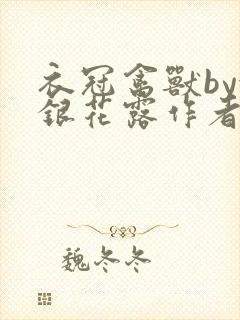 衣冠禽獸by
銀花露作者
魏冬冬